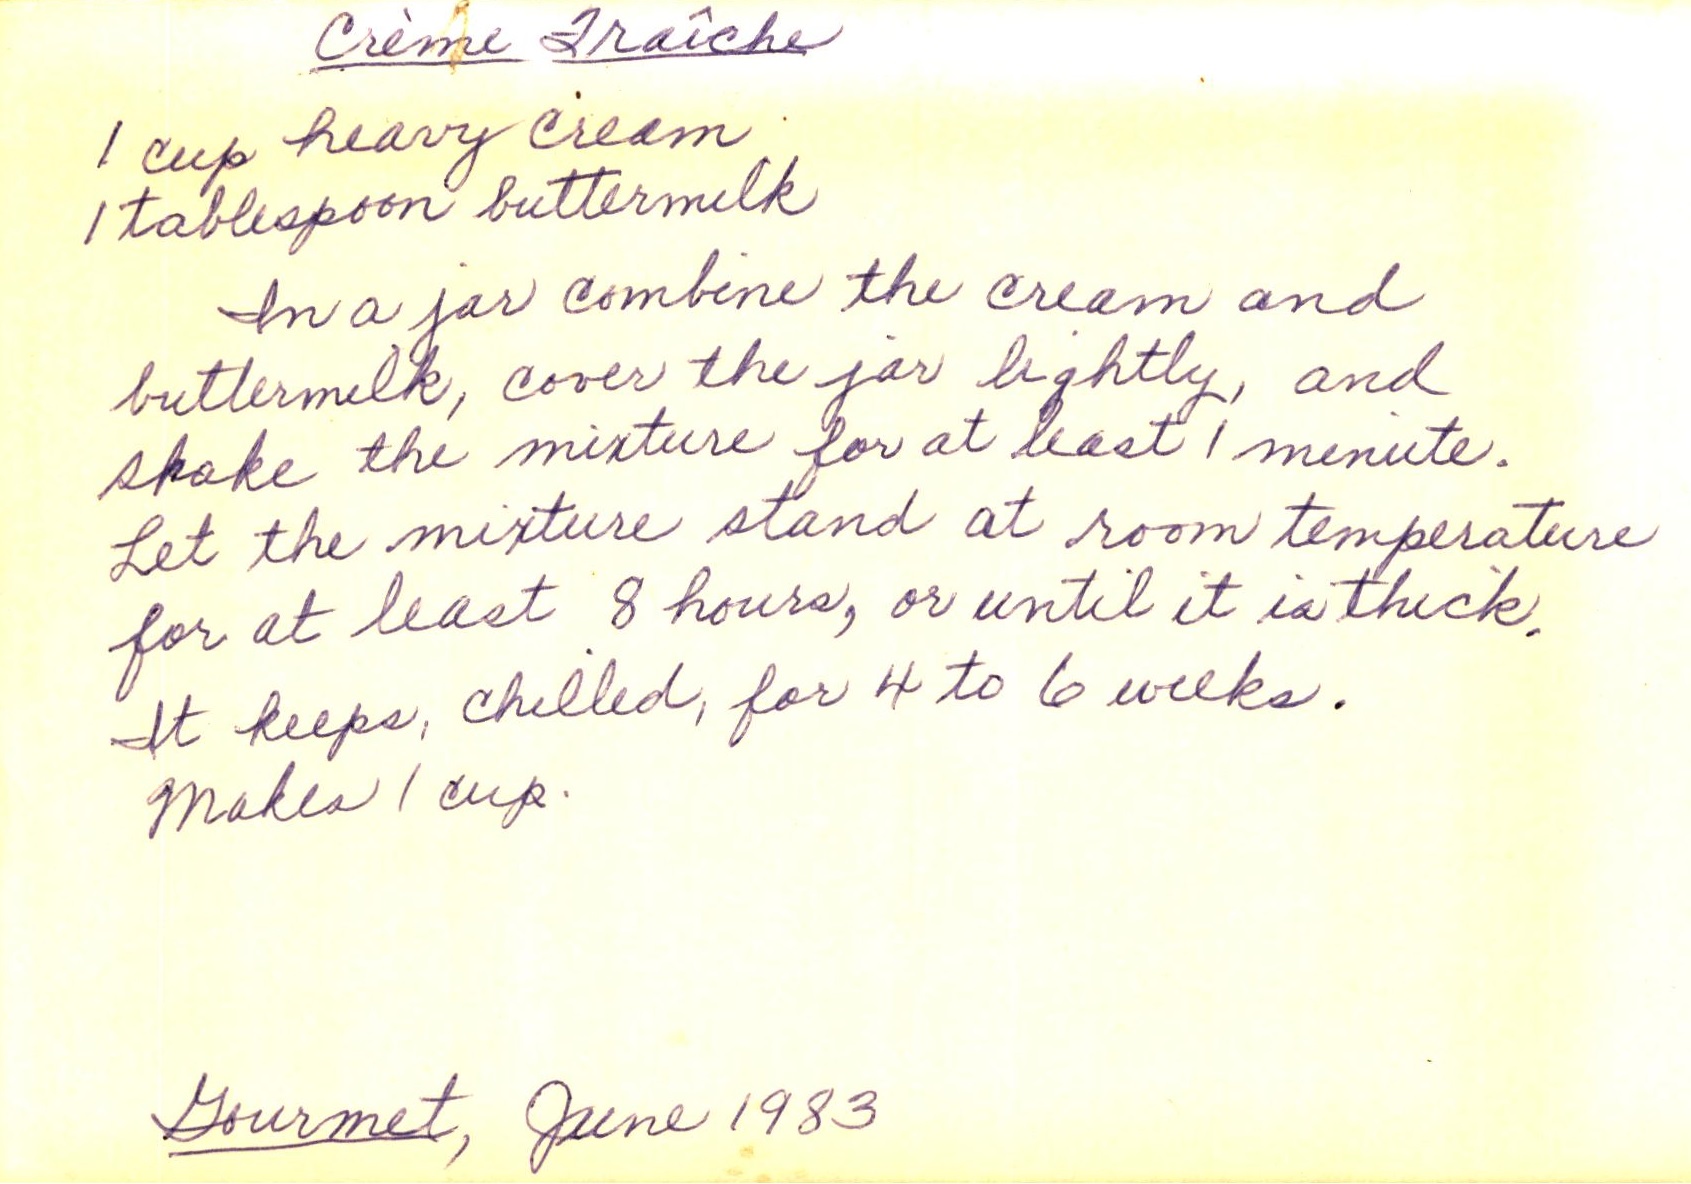 Crème Fraîche
1 cup heavy cream
1 tablespoon buttermilk
In a jar combine the cream and
buttermilk, cover the jar lightly, and
shake the mixture for at least 1 minute.
Let the mixture stand at room temperature
for at least 8 hours, or until it is thick.
It keeps, chilled, for 4 to 6 weeks.
Makes 1 cup.
Gourmet, June 1983